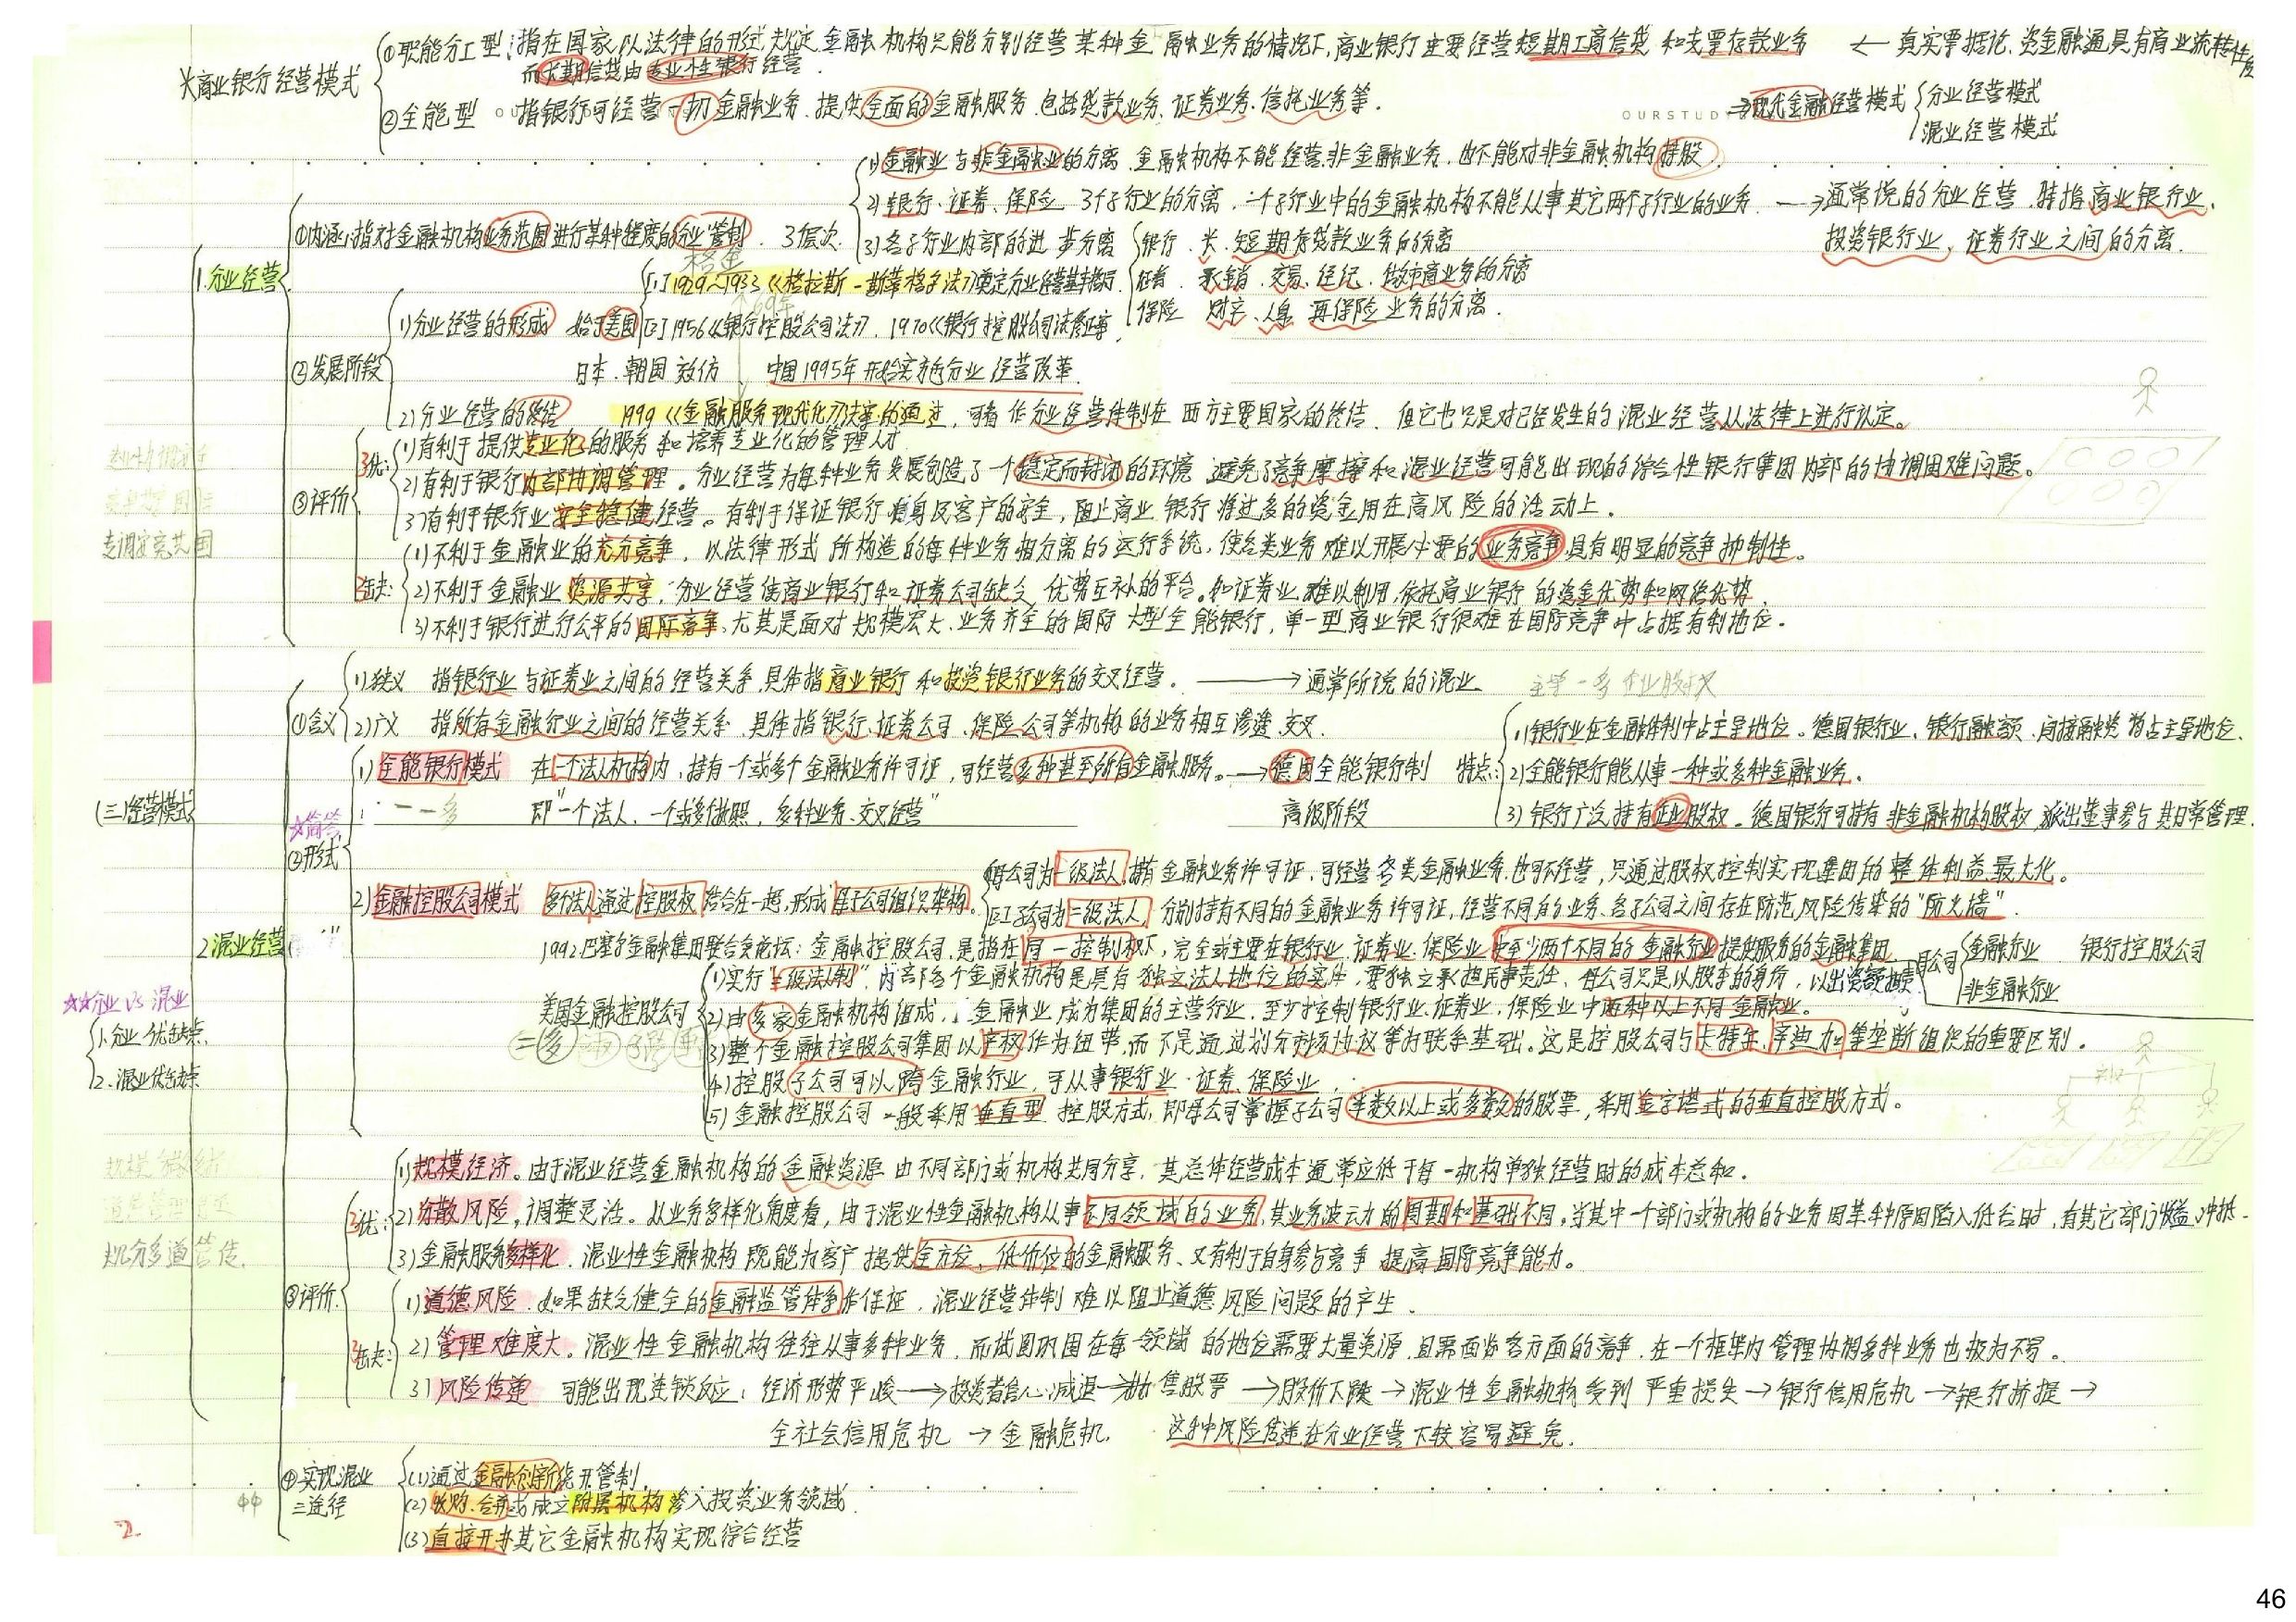 *商业银行经营模式
①职能分工型:指在国家以法律的形式规定金融机构只能分别经营某种金融业务的情况下,商业银行主要经营短期工商信贷和支票存款业务 ← 真实票据论,资金融通具有商业流转性质
而长期信贷由专业性银行经营.
②全能型 指银行可经营一切金融业务.提供全面的金融服务.包括贷款业务、证券业务、信托业务等.
OURSTUD
→现代金融经营模式
分业经营模式
混业经营模式
(三)经营模式
1.分业经营
①内涵:指对金融机构业务范围进行某种程度的分业管制. 3层次.
1)金融业与非金融业的分离.金融机构不能经营非金融业务,也不能对非金融机构持股.
2)银行、证券、保险 3个子行业的分离.一个子行业中的金融机构不能从事其它两个子行业的业务. → 通常说的分业经营.特指商业银行业、
投资银行业,证券行业之间的分离.
3)各子行业内部的进一步分离
银行 长、短期存贷款业务的分离
证券 承销、交易、经纪、做市商业务的分离
保险 财产、人身、再保险业务的分离.
②发展阶段
1)分业经营的形成 始于美国
格金
[1]1929~1933《格拉斯-斯蒂格尔法》奠定分业经营基本格局
[2]1956《银行控股公司法》,1970《银行控股公司法修正案
日本.韩国效仿 中国1995年开始实施分业经营改革.
2)分业经营的终结 1999《金融服务现代化》法案的通过,可看作分业经营体制在西方主要国家的终结.但它也只是对已经发生的混业经营从法律上进行认定。
③评价
3优:
1)有利于提供专业化的服务和培养专业化的管理人才
2)有利于银行内部协调管理。分业经营为每种业务发展创造了一个稳定而封闭的环境.避免了竞争摩擦和混业经营可能出现的综合性银行集团内部的协调困难问题。
3)有利于银行业安全稳健经营。有利于保证银行自身及客户的安全,阻止商业银行将过多的资金用在高风险的活动上.
专调安竞共国
缺:
1)不利于金融业的充分竞争.以法律形式所构造的每种业务相分离的运行系统,使各类业务难以开展必要的业务竞争.具有明显的竞争抑制性。
2)不利于金融业资源共享,分业经营使商业银行和证券公司缺乏优势互补的平台。如证券业难以利用.依托商业银行的资金优势和网络优势.
3)不利于银行进行公平的国际竞争,尤其是面对规模宏大、业务齐全的国际大型全能银行,单一型商业银行很难在国际竞争中占据有利地位.
2.混业经营
①含义
1)狭义 指银行业与证券业之间的经营关系.具体指商业银行和投资银行业务的交叉经营. → 通常所说的混业.
2)广义 指所有金融行业之间的经营关系.具体指银行、证券公司、保险公司等机构的业务相互渗透、交叉.
☆简答
②形式
1)全能银行模式 在一个法人机构内,持有一个或多个金融业务许可证,可经营多种甚至所有金融服务。→德国全能银行制 特点:
一一多 即"一个法人、一个或多个牌照,多种业务、交叉经营" 高级阶段
1)银行业在金融体制中占主导地位。德国银行业、银行融资额、间接融资均占主导地位.
2)全能银行能从事一种或多种金融业务.
3)银行广泛持有企业股权。德国银行可持有非金融机构股权,派出董事参与其日常管理.
2)金融控股公司模式 多个法人通过控股权结合在一起,形成母子公司组织架构。
母公司为一级法人,拥有金融业务许可证,可经营各类金融业务.也可不经营,只通过股权控制实现集团的整体利益最大化。
[2]子公司为二级法人,分别持有不同的金融业务许可证,经营不同的业务.各子公司之间存在防范风险传染的"防火墙".
1992巴塞尔金融集团联合论坛:金融控股公司.是指在同一控制权下,完全或主要在银行业、证券业、保险业中至少两个不同的金融行业提供服务的金融集团.
母公司
金融行业 银行控股公司
非金融行业
美国金融控股公司
1)实行"二级法人制",内部各个金融机构是具有独立法人地位的实体,要独立承担民事责任.母公司只是以股东的身份,以出资额担责.
2)由多家金融机构组成,金融业成为集团的主营行业,至少控制银行业、证券业,保险业中两种以上不同金融业。
3)整个金融控股公司集团以产权作为纽带,而不是通过划分市场协议等为联系基础.这是控股公司与卡特尔、辛迪加等垄断组织的重要区别.
4)控股子公司可以跨金融行业,可从事银行业、证券、保险业.
5)金融控股公司一般采用垂直型控股方式,即母公司掌握子公司半数以上或多数的股票,采用金字塔式的垂直控股方式.
☆☆分业vs混业
1.分业优缺点.
2.混业优缺点
③评价.
优:
1)规模经济。由于混业经营金融机构的金融资源由不同部门或机构共同分享,其总体经营成本通常应低于每一机构单独经营时的成本总和.
2)分散风险,调整灵活。从业务多样化角度看,由于混业性金融机构从事不同领域的业务,其业务波动的周期和基础不同,当其中一个部门或机构的业务因某种原因陷入低谷时,有其它部门收益冲抵.
3)金融服务多样化.混业性金融机构既能为客户提供全方位、低价位的金融服务、又有利于自身参与竞争.提高国际竞争能力。
规分多道管传.
缺:
1)道德风险.如果缺乏健全的金融监管体系作保证,混业经营体制难以阻止道德风险问题的产生.
2)管理难度大。混业性金融机构往往从事多种业务,而试图巩固在每一领域的地位需要大量资源.且需面临各方面的竞争.在一个框架内管理协调多种业务也极为不易。
3)风险传递 可能出现连锁反应:经济形势严峻→投资者信心减退→抛售股票→股价下跌→混业性金融机构受到严重损失→银行信用危机→银行挤提→
全社会信用危机→金融危机. 这种风险传递在分业经营下较容易避免.
④实现混业
三途径
(1)通过金融创新绕开管制.
(2)收购、合并或成立附属机构渗入投资业务领域.
(3)直接开办其它金融机构实现综合经营
2
46